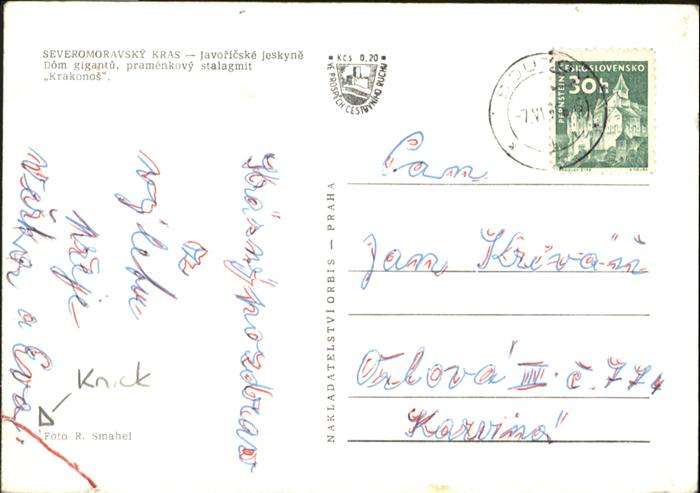 SEVEROMORAVSKÝ KRAS — Javoříčské jeskyně
Dóm gigantů, praménkový stalagmit
„Krakonoš".
KČS 0,20
VE PROSPĚCH CESTOVNÍHO RUCHU
ČESKOSLOVENSKO
30h
PERNŠTEJN
-7.VI.
Krásný pozdrav
z
výletu
přeje
Věrka a Eva
Knick
Foto R. Smahel
NAKLADATELSTVÍ ORBIS — PRAHA
Pan
Jan Křiváň
Orlová III. č. 771
"Karviná"